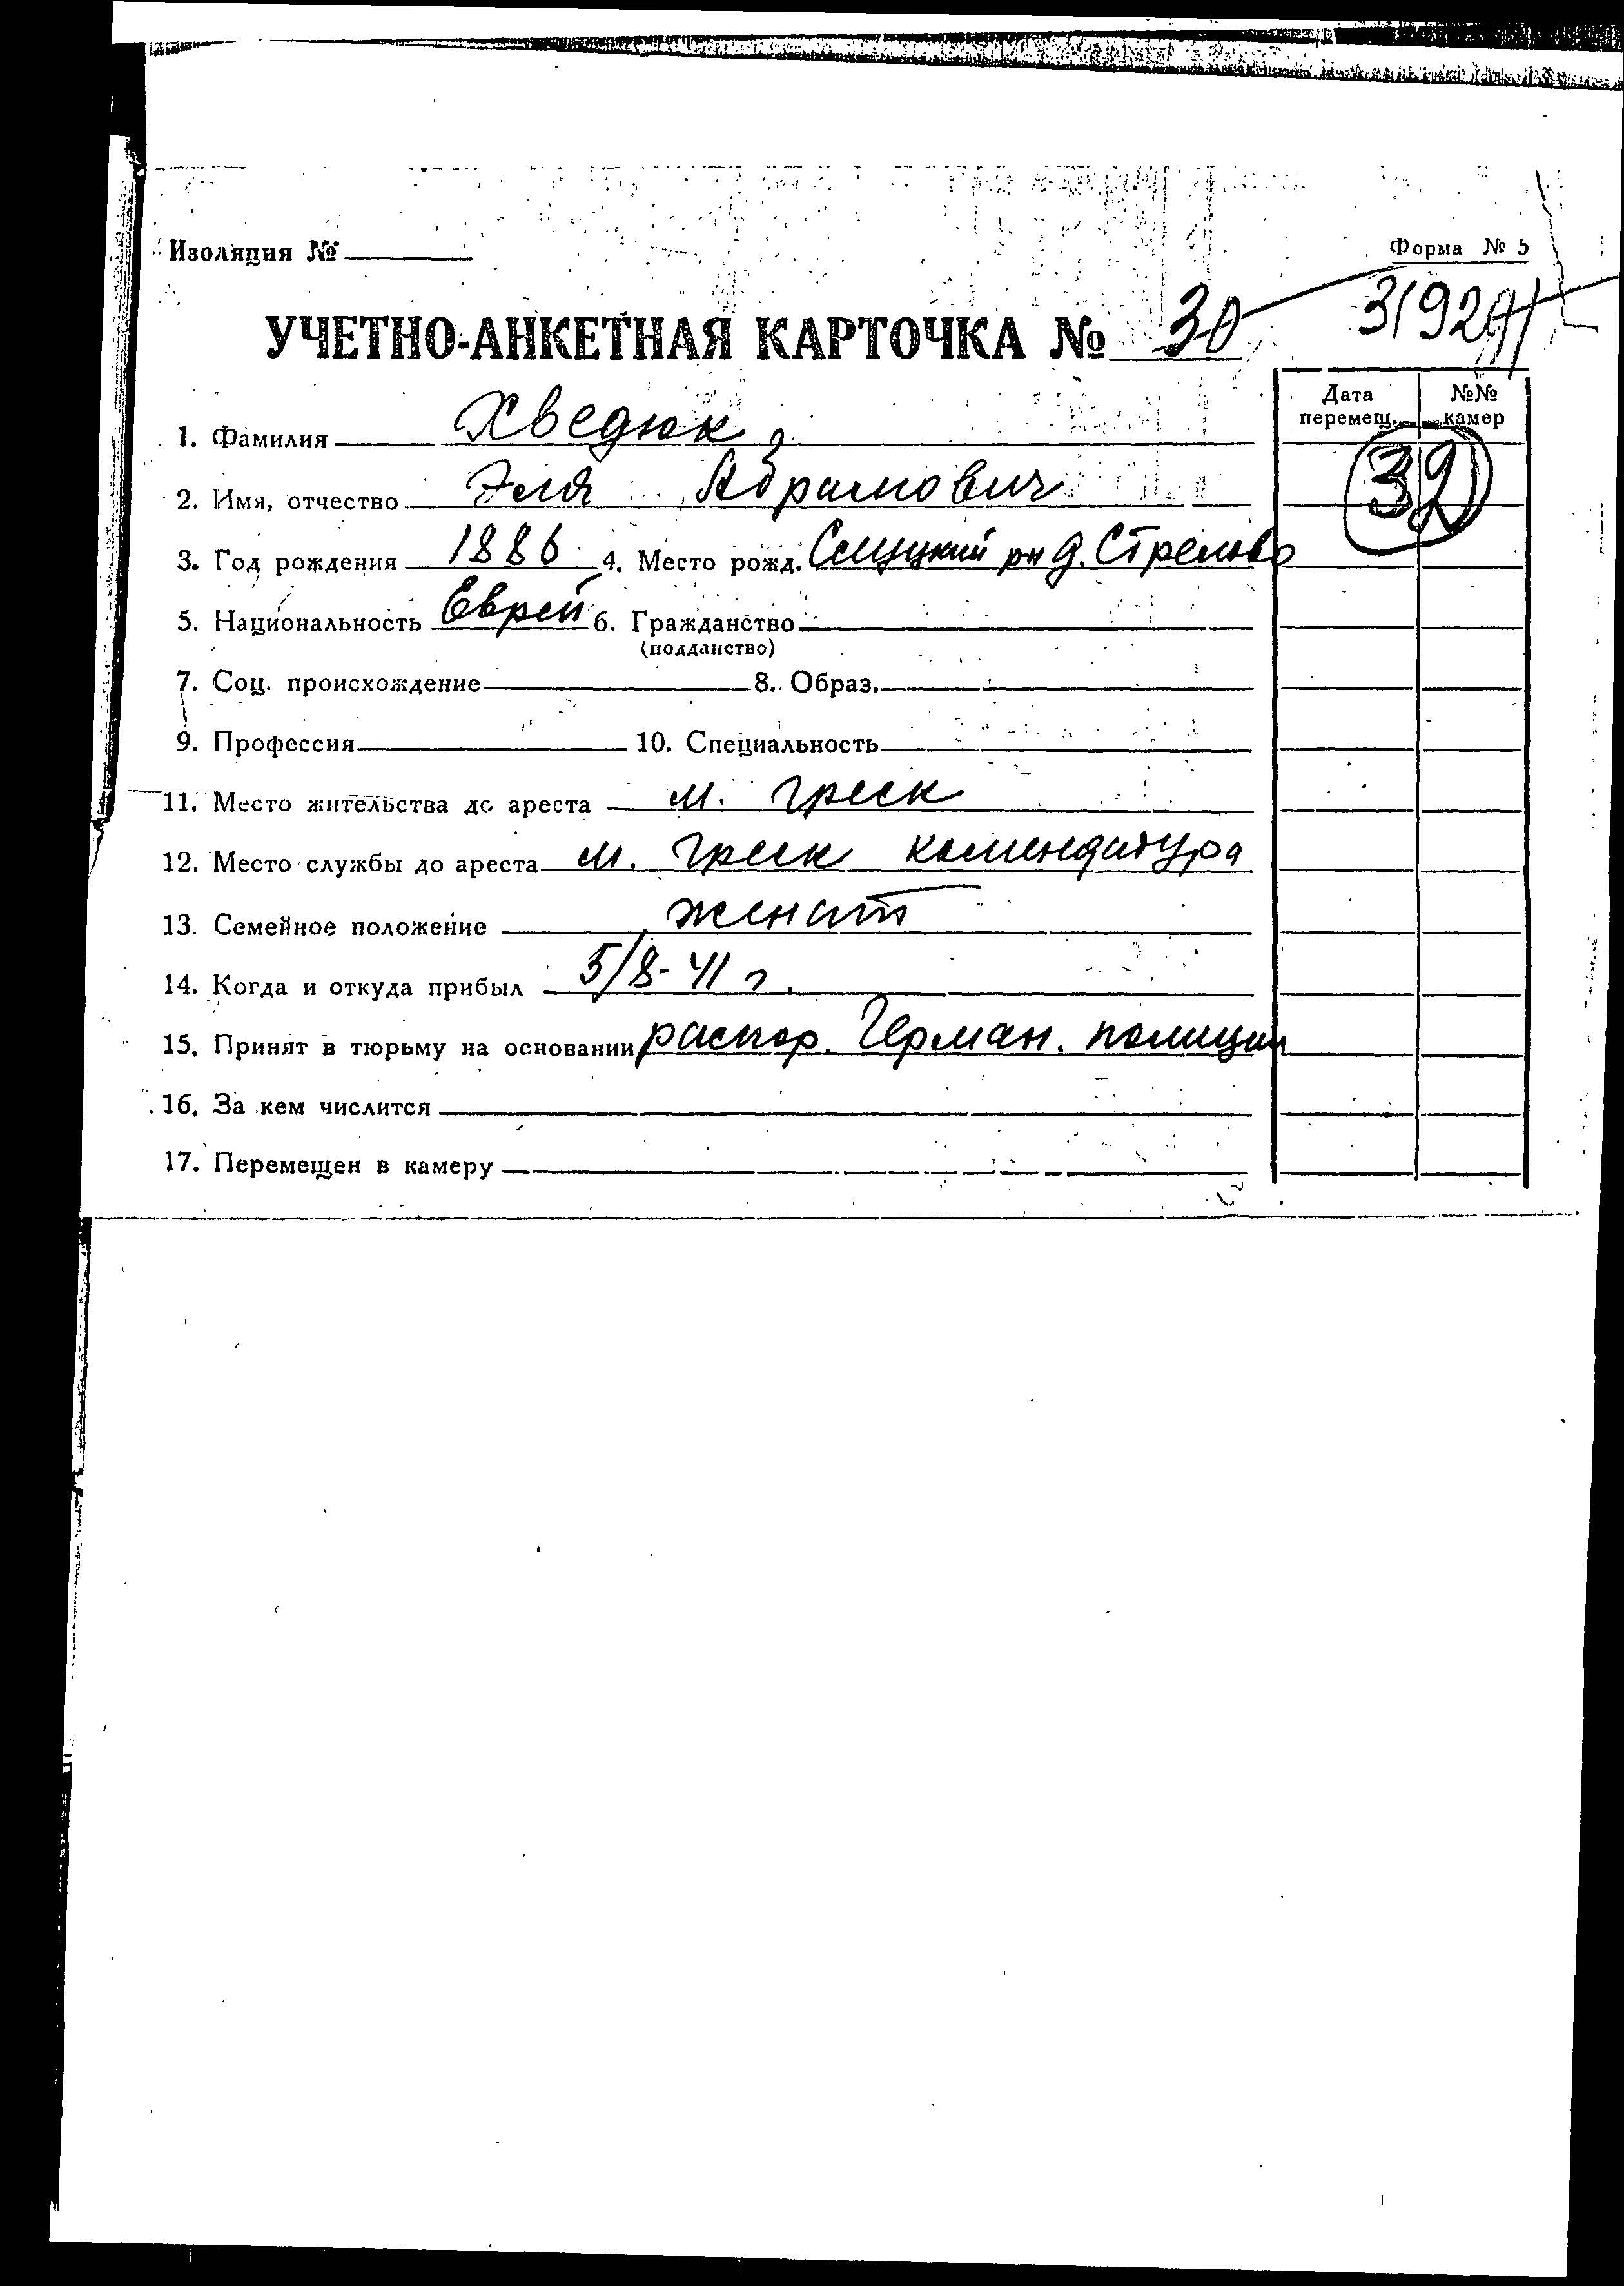 Изоляция №
Форма № 5
УЧЕТНО-АНКЕТНАЯ КАРТОЧКА № 30
Дата перемещ. №№ камер
32
1. Фамилия Хведюк
2. Имя, отчество Эля Абрамович
3. Год рождения 1886 4. Место рожд. Слуцкий рн д. Стрелово
5. Национальность Еврей 6. Гражданство
(подданство)
7. Соц. происхождение 8. Образ.
9. Профессия 10. Специальность
11. Место жительства до ареста м. Греск
12. Место службы до ареста м. Греск комендатура
13. Семейное положение женат
14. Когда и откуда прибыл 5/8-41 г.
15. Принят в тюрьму на основании распор. Герман. полиции
16. За кем числится
17. Перемещен в камеру